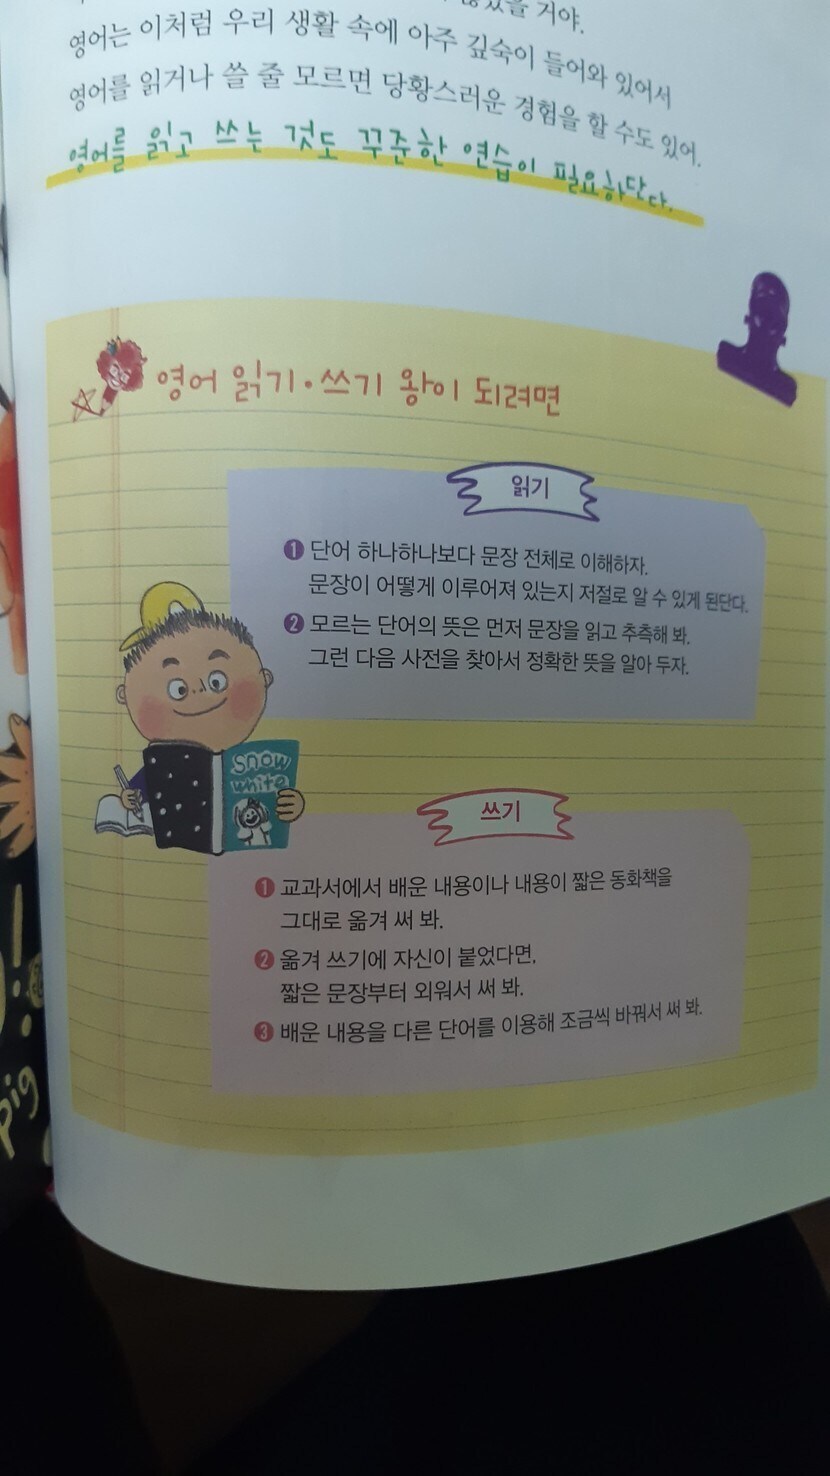 거야.
영어는 이처럼 우리 생활 속에 아주 깊숙이 들어와 있어서
영어를 읽거나 쓸 줄 모르면 당황스러운 경험을 할 수도 있어.
영어를 읽고 쓰는 것도 꾸준한 연습이 필요하단다.
영어 읽기·쓰기 왕이 되려면
읽기
❶ 단어 하나하나보다 문장 전체로 이해하자.
문장이 어떻게 이루어져 있는지 저절로 알 수 있게 된단다.
❷ 모르는 단어의 뜻은 먼저 문장을 읽고 추측해 봐.
그런 다음 사전을 찾아서 정확한 뜻을 알아 두자.
snow
white
쓰기
❶ 교과서에서 배운 내용이나 내용이 짧은 동화책을
그대로 옮겨 써 봐.
❷ 옮겨 쓰기에 자신이 붙었다면,
짧은 문장부터 외워서 써 봐.
❸ 배운 내용을 다른 단어를 이용해 조금씩 바꿔서 써 봐.
pig